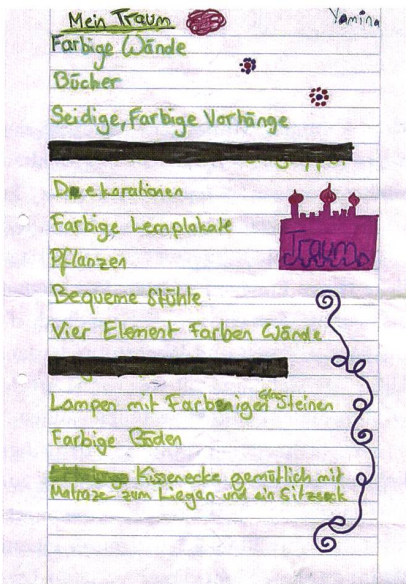 Mein Traum
Yamina
Farbige Wände
Bücher
Seidige, Farbige Vorhänge
Dekorationen
Farbige Lernplakate
Traum
Pflanzen
Bequeme Stühle
Vier Element Farben Wände
Lampen mit Farbenigen Glas Steinen
Farbige Böden
Kissenecke gemütlich mit
Matraze zum Liegen und ein Sitzseck